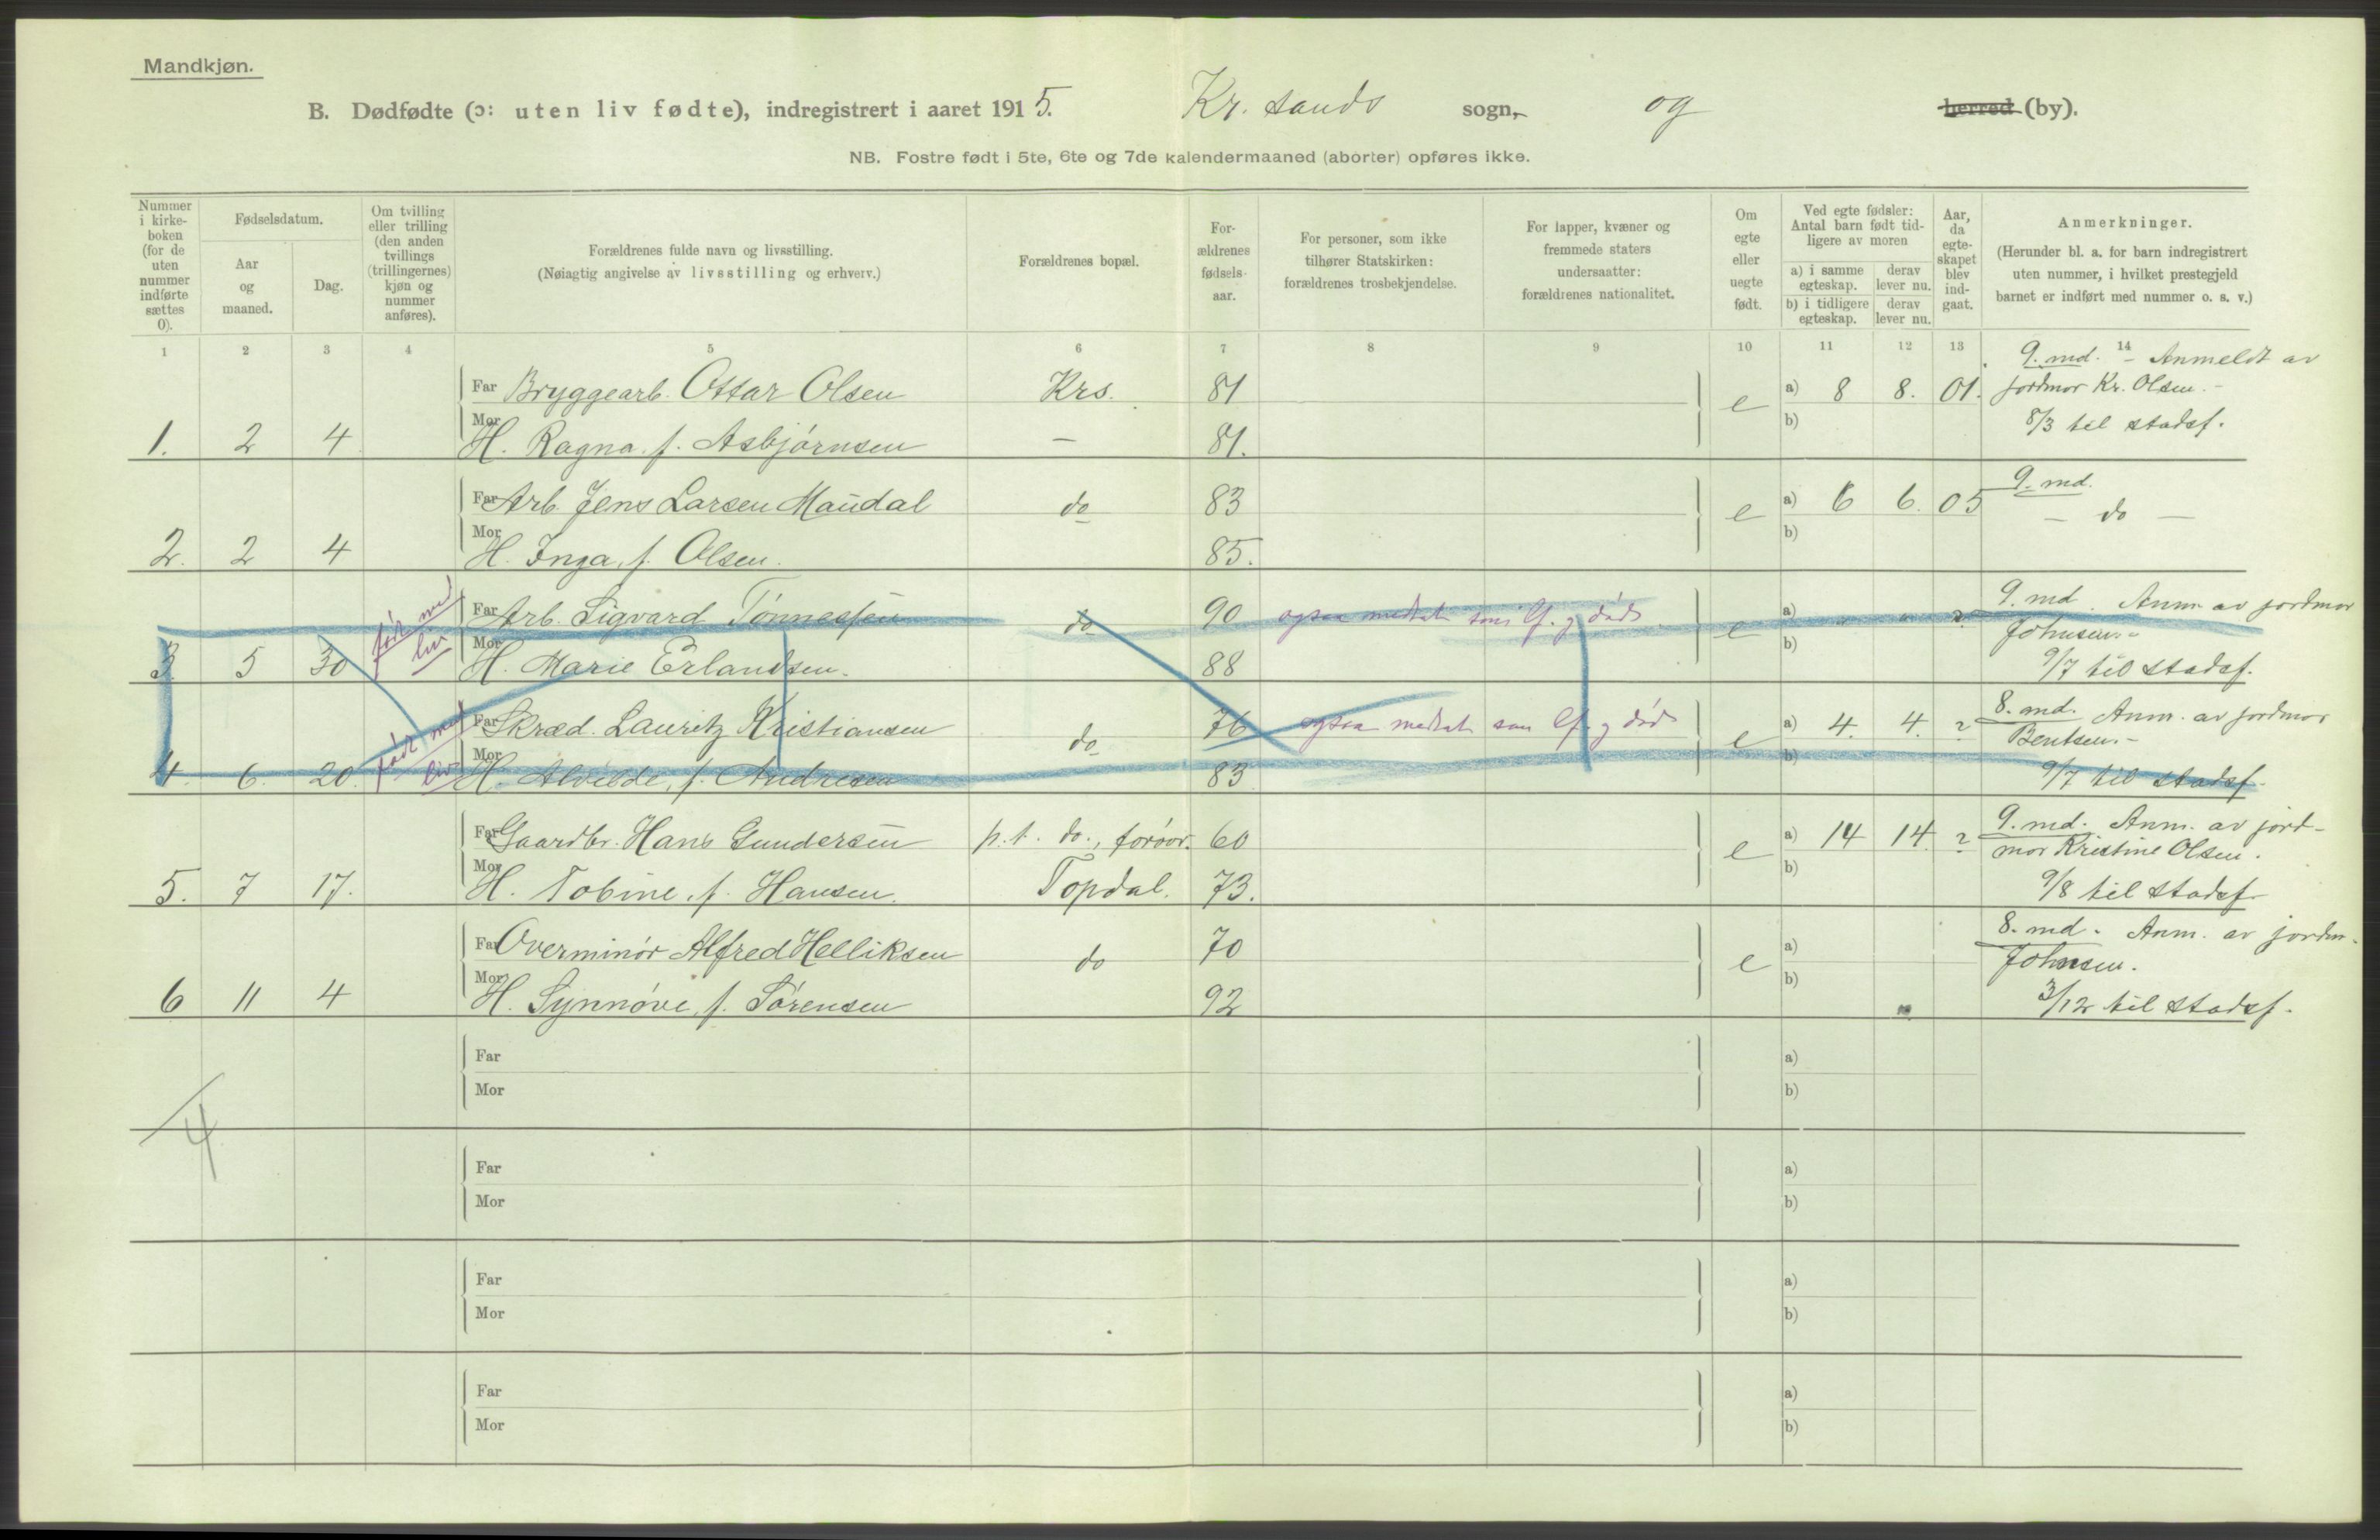 Mandkjøn.
B. Dødfødte (ɔ: uten liv fødte), indregistrert i aaret 1915. Kr. sands sogn, og herred (by).
NB. Fostre født i 5te, 6te og 7de kalendermaaned (aborter) opføres ikke.
Nummer i kirkeboken (for de uten nummer indførte sættes 0).
Fødselsdatum.
Aar og maaned.
Dag.
Om tvilling eller trilling (den anden tvillings (trillingernes) kjøn og nummer anføres).
Forældrenes fulde navn og livsstilling.
(Nøiagtig angivelse av livsstilling og erhverv.)
Forældrenes bopæl.
Forældrenes fødselsaar.
For personer, som ikke tilhører Statskirken: forældrenes trosbekjendelse.
For lapper, kvæner og fremmede staters undersaatter: forældrenes nationalitet.
Om egte eller uegte født.
Ved egte fødsler: Antal barn født tidligere av moren
a) i samme egteskap.
derav lever nu.
b) i tidligere egteskap.
derav lever nu.
Aar, da egteskapet blev indgaat.
Anmerkninger.
(Herunder bl. a. for barn indregistrert uten nummer, i hvilket prestegjeld barnet er indført med nummer o. s. v.)
1 2 3 4 5 6 7 8 9 10 11 12 13 14
Far Bryggearb. Ottar Olsen Krs. 81 e a) 8 8. 01. 9. md. - Anmeldt av
jordmor Kr. Olsen. -
b) 8/3 til stadsf.
1. 2 4 Mor H. Ragna f. Asbjørnsen — 81.
Far Arb. Jens Larsen Maudal do 83 e a) 6 6. 05 9. md.
b) — do —
2. 2 4 Mor H. Inga, f. Olsen. 85.
Far Arb. Sigvard Tønnessen do 90 ogsaa medtat som lf. og død e a) " " ? 9. md. Anm. av jordmor
født med liv b) Johnsen. -
3 5 30 Mor H. Marie Erlandsen. 88 9/7 til stadsf.
Far Skræd. Lauritz Kristiansen do 76 ogsaa medtat som lf. og død e a) 4. 4. ? 8. md. Anm. av jordmor
født med liv b) Bentsen. -
4. 6. 20. Mor H. Alvilde, f. Andresen 83 9/7 til stadsf.
Far Gaardbr. Hans Gundersen p.t. do., forøvr. 60 e a) 14 14. ? 9. md. Anm. av jord-
b) mor Kristine Olsen.
5. 7 17. Mor H. Tobine, f. Hansen. Topdal. 73. 9/8 til stadsf.
Far Overminør Alfred Helliksen do 70 e a) 8. md. Anm. av jordm.
b) Johnsen.
6 11 4 Mor H. Synnøve, f. Sørensen 92 " 3/12 til stadsf.
Far a)
Mor b)
4
Far a)
Mor b)
Far a)
Mor b)
Far a)
Mor b)